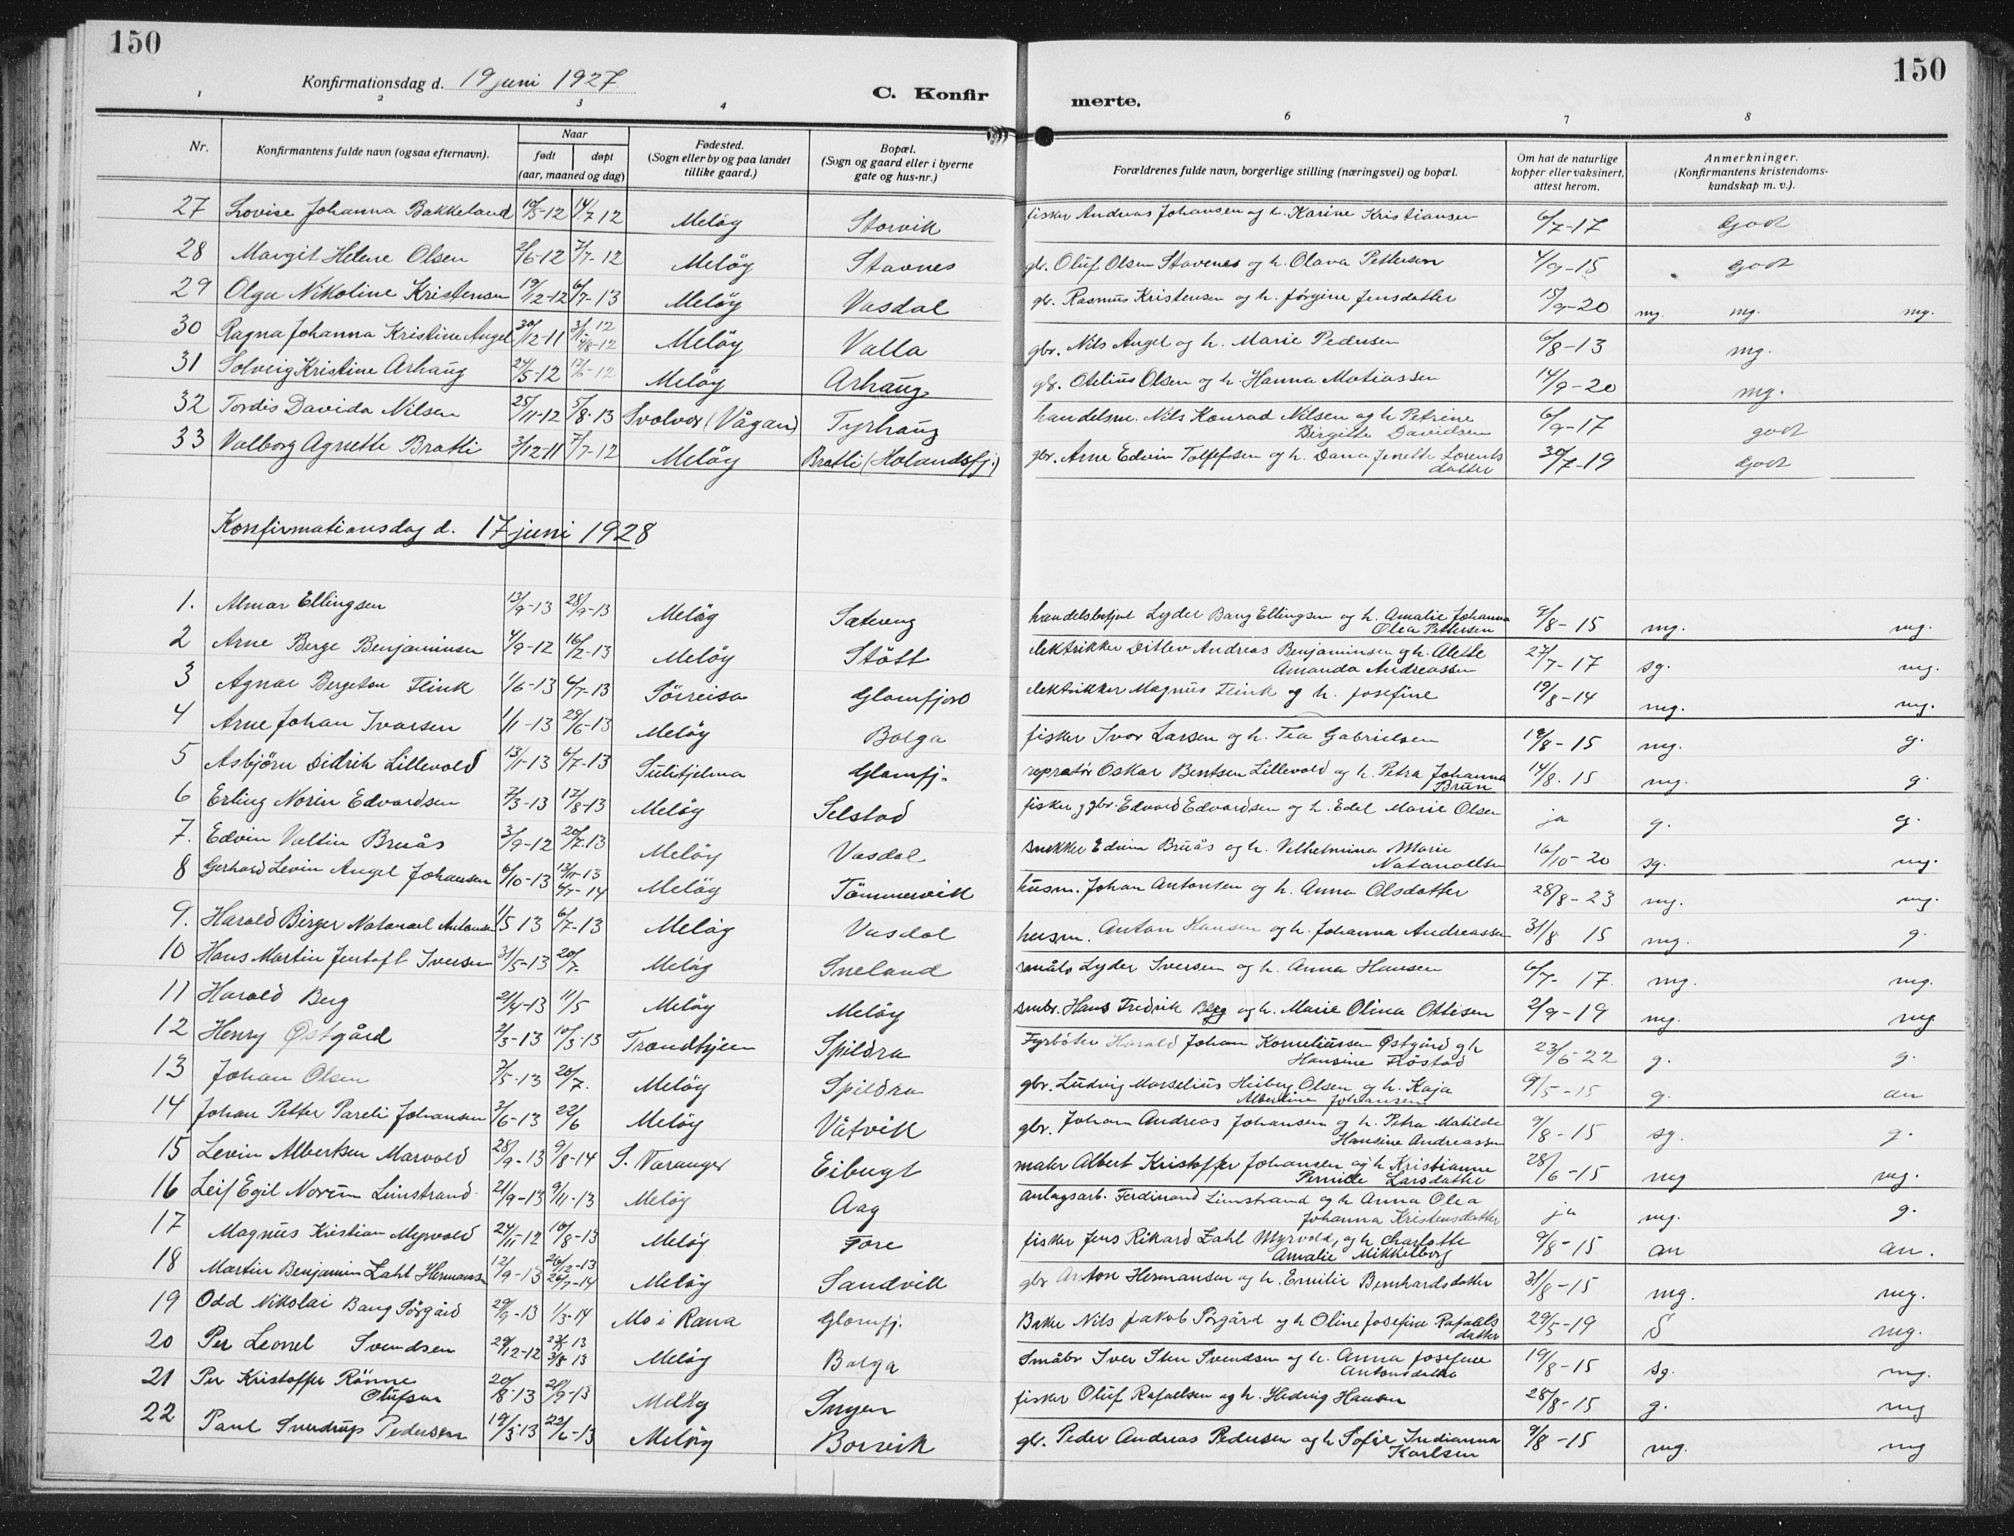 150
150
Konfirmationsdag d. 19 juni 1927.
C. Konfir
merte.
1 2 3 4 6 7 8
Nr.
Konfirmantens fulde navn (ogsaa efternavn).
Naar
født
døpt
(aar, maaned og dag)
Fødested.
(Sogn eller by og paa landet
tillike gaard.)
Bopæl.
(Sogn og gaard eller i byerne
gate og hus-nr.)
Forældrenes fulde navn, borgerlige stilling (næringsvei) og bopæl.
Om hat de naturlige
kopper eller vaksinert,
attest herom.
Anmerkninger.
(Konfirmantens kristendoms-
kundskap m. v.).
27 Lovise Johanna Bakkeland 19/5-12 14/7 12 Meløy Storvik fisker Andreas Johansen og h. Karine Kristiansen 6/7-17 Godt
28 Margit Helene Olsen 2/6-12 7/7-12 Meløy Stavnes gbr. Oluf Olsen Stavenes og h. Olava Pettersen 4/9-15 Godt
29 Olga Nikoline Kristensen 19/12-12 6/7-13 Meløy Vasdal gbr. Rasmus Kristensen og h. Jørgine Jensdatter 15/9-20 mg. mg. mg.
30 Ragna Johanna Kristine Angel 30/12-11 Meløy Valla gbr. Nils Angel og h. Marie Pedersen 6/8-13 mg.
31 Solveig Kristine Arhaug 24/5-12 Meløy Arhaug gbr. Otelius Olsen og h. Hanna Matiassen 14/9-20 mg.
32 Tordis Davida Nilsen 25/11-12 5/8-13 Svolvær (Vågan) Tyrhaug handelsm. Nils Konrad Nilsen og h Petrine
Birgitte Davidsen 6/9-17 godt
33 Valborg Agnette Bratli 3/12-11 7/7-12 Meløy Bratli (Holandsfj.) gbr. Arne Edvin Tollefsen og h. Dana Jenette Lorents
datter 30/7-19 Godt
Konfirmationsdag d. 17 juni 1928
1. Almar Ellingsen 13/9-13 28/9-13 Meløy Sætereng handelsbetjnt Lyder Bang Ellingsen og h. Amalie Johanna
Olea Pettersen 9/8-15 mg. mg.
2 Arne Berge Benjaminsen 4/9-12 16/2-13 Meløy Støtt elektrikker Ditlev Andreas Benjaminsen og h. Alette
Amanda Andreassen 27/7-17 sg. mg.
3 Agnar Bergeton Flink 1/6-13 6/7-13 Sørreisa Glomfjord elektrikker Magnus Flink og h. Josefine 19/8-14 mg. mg.
4 Arne Johan Ivarsen 1/1-13 29/6-13 Meløy Bolga fisker Ivar Larsen og h. Tea Gabrielsen 19/8-15 mg. g.
5 Asbjørn Didrik Lillevold 13/1-13 6/7-13 Sulitjelma Glomfj. repratør Oskar Bentsen Lillevold og h. Petra Johanna
Brun 14/8-15 mg. g.
6 Erling Norin Edvardsen 7/3-13 17/8-13 Meløy Selstad fisker, gbr. Edvard Edvardsen og h. Edel Marie Olsen ja g. g.
7. Edvin Valtin Bruås 3/9-12 20/7-13 Meløy Vasdal snekker Edvin Bruås og h. Vilhelmina Marie
Natanaelsen 16/10-20 sg. mg.
8 Gerhard Levin Angel Johansen 6/10-13 Meløy Tømmervik husm. Johan Antonsen og h. Anna Olsdatter 28/8-23 mg. mg.
9. Harald Birger Natanael Antonsen 1/5 13 6/7-13 Meløy Vasdal husm. Anton Hansen og h. Johanna Andreassen 31/8 15 mg. g.
10 Hans Martin Jentoft Iversen 31/5-13 20/7- Meløy Sneland småb Lyder Iversen og h. Anna Hansen 6/7- 17. mg. mg.
11 Harald Berg 2/4-13 11/5 Meløy Meløy smbr. Hans Fredrik Berg og h. Marie Olina Ottesen 2/9-19 mg. mg
12 Henry Østgård 2/3-13 10/3-13 Trondhjem Spildra Fyrbøter Harald Johan Korneliussen Østgård og h
Hansine Fløstad 23/6-22 g. g.
13 Johan Olsen 3/5-13 20/7. Meløy Spildra gbr. Ludvig Marselius Heiberg Olsen og h. Kaja
Albertine Johansen 9/5-15 g. an
14 Johan Petter Pareli Johansen 3/6-13 22/6 Meløy Våtvik gbr. Johan Andreas Johansen og h. Petra Matilde
Hansine Andreassen 9/8-15 sg. g.
15 Levin Albertsen Marvold 28/9-13 9/8-14 S. Varanger Eibugt maler Albert Kristoffer Johansen og h Kristianne
Pernille Larsdatter 28/6-15 mg mg.
16 Leif Egil Norum Limstrand 21/9-13 9/11-13 Meløy Aag anlagsarb. Ferdinand Limstrand og h Anna Olea
Johanna Kristensdatter ja mg. g.
17 Magnus Kristian Myrvold 24/11-12 10/8-13 Meløy Fore fisker Jens Rikard Zahl Myrvold, og h Charlotte
Amalie Mikkelborg 9/8-15 an an.
18 Martin Benjamin Zahl Hermansen 12/9-13 26/12-13 26/7-14 Meløy Sandvik gbr Anton Hermansen og h. Emilie Bernhardsdatter 31/8-15 mg. mg.
19 Odd Nikolai Bang Sørgård 29/9-13 1/3-14 Mo i Rana Glomfj. Baker Nils Jakob Sørgård og h Oline Josefine Rafaels
datter 29/5-19 S mg.
20 Per Leonel Svendsen 29/12-12 3/8-13 Meløy Bolga Småbr Iver Sten Svendsen og h. Anna Josefine
Antonsdatter 19/8-15 sg. mg.
21 Per Kristoffer Rønne
Olufsen 20/8-13 21/9-13 Meløy Inyen fisker Oluf Rafaelsen og h. Hedvig Hansen 28/8-15 g. mg
22 Paul Sverdrup Pedersen 19/3-13 22/6-13 Meløy Borvik gbr. Peder Andreas Pedersen og h Sofie Indianna
Karlsen 9/8-15 mg. mg